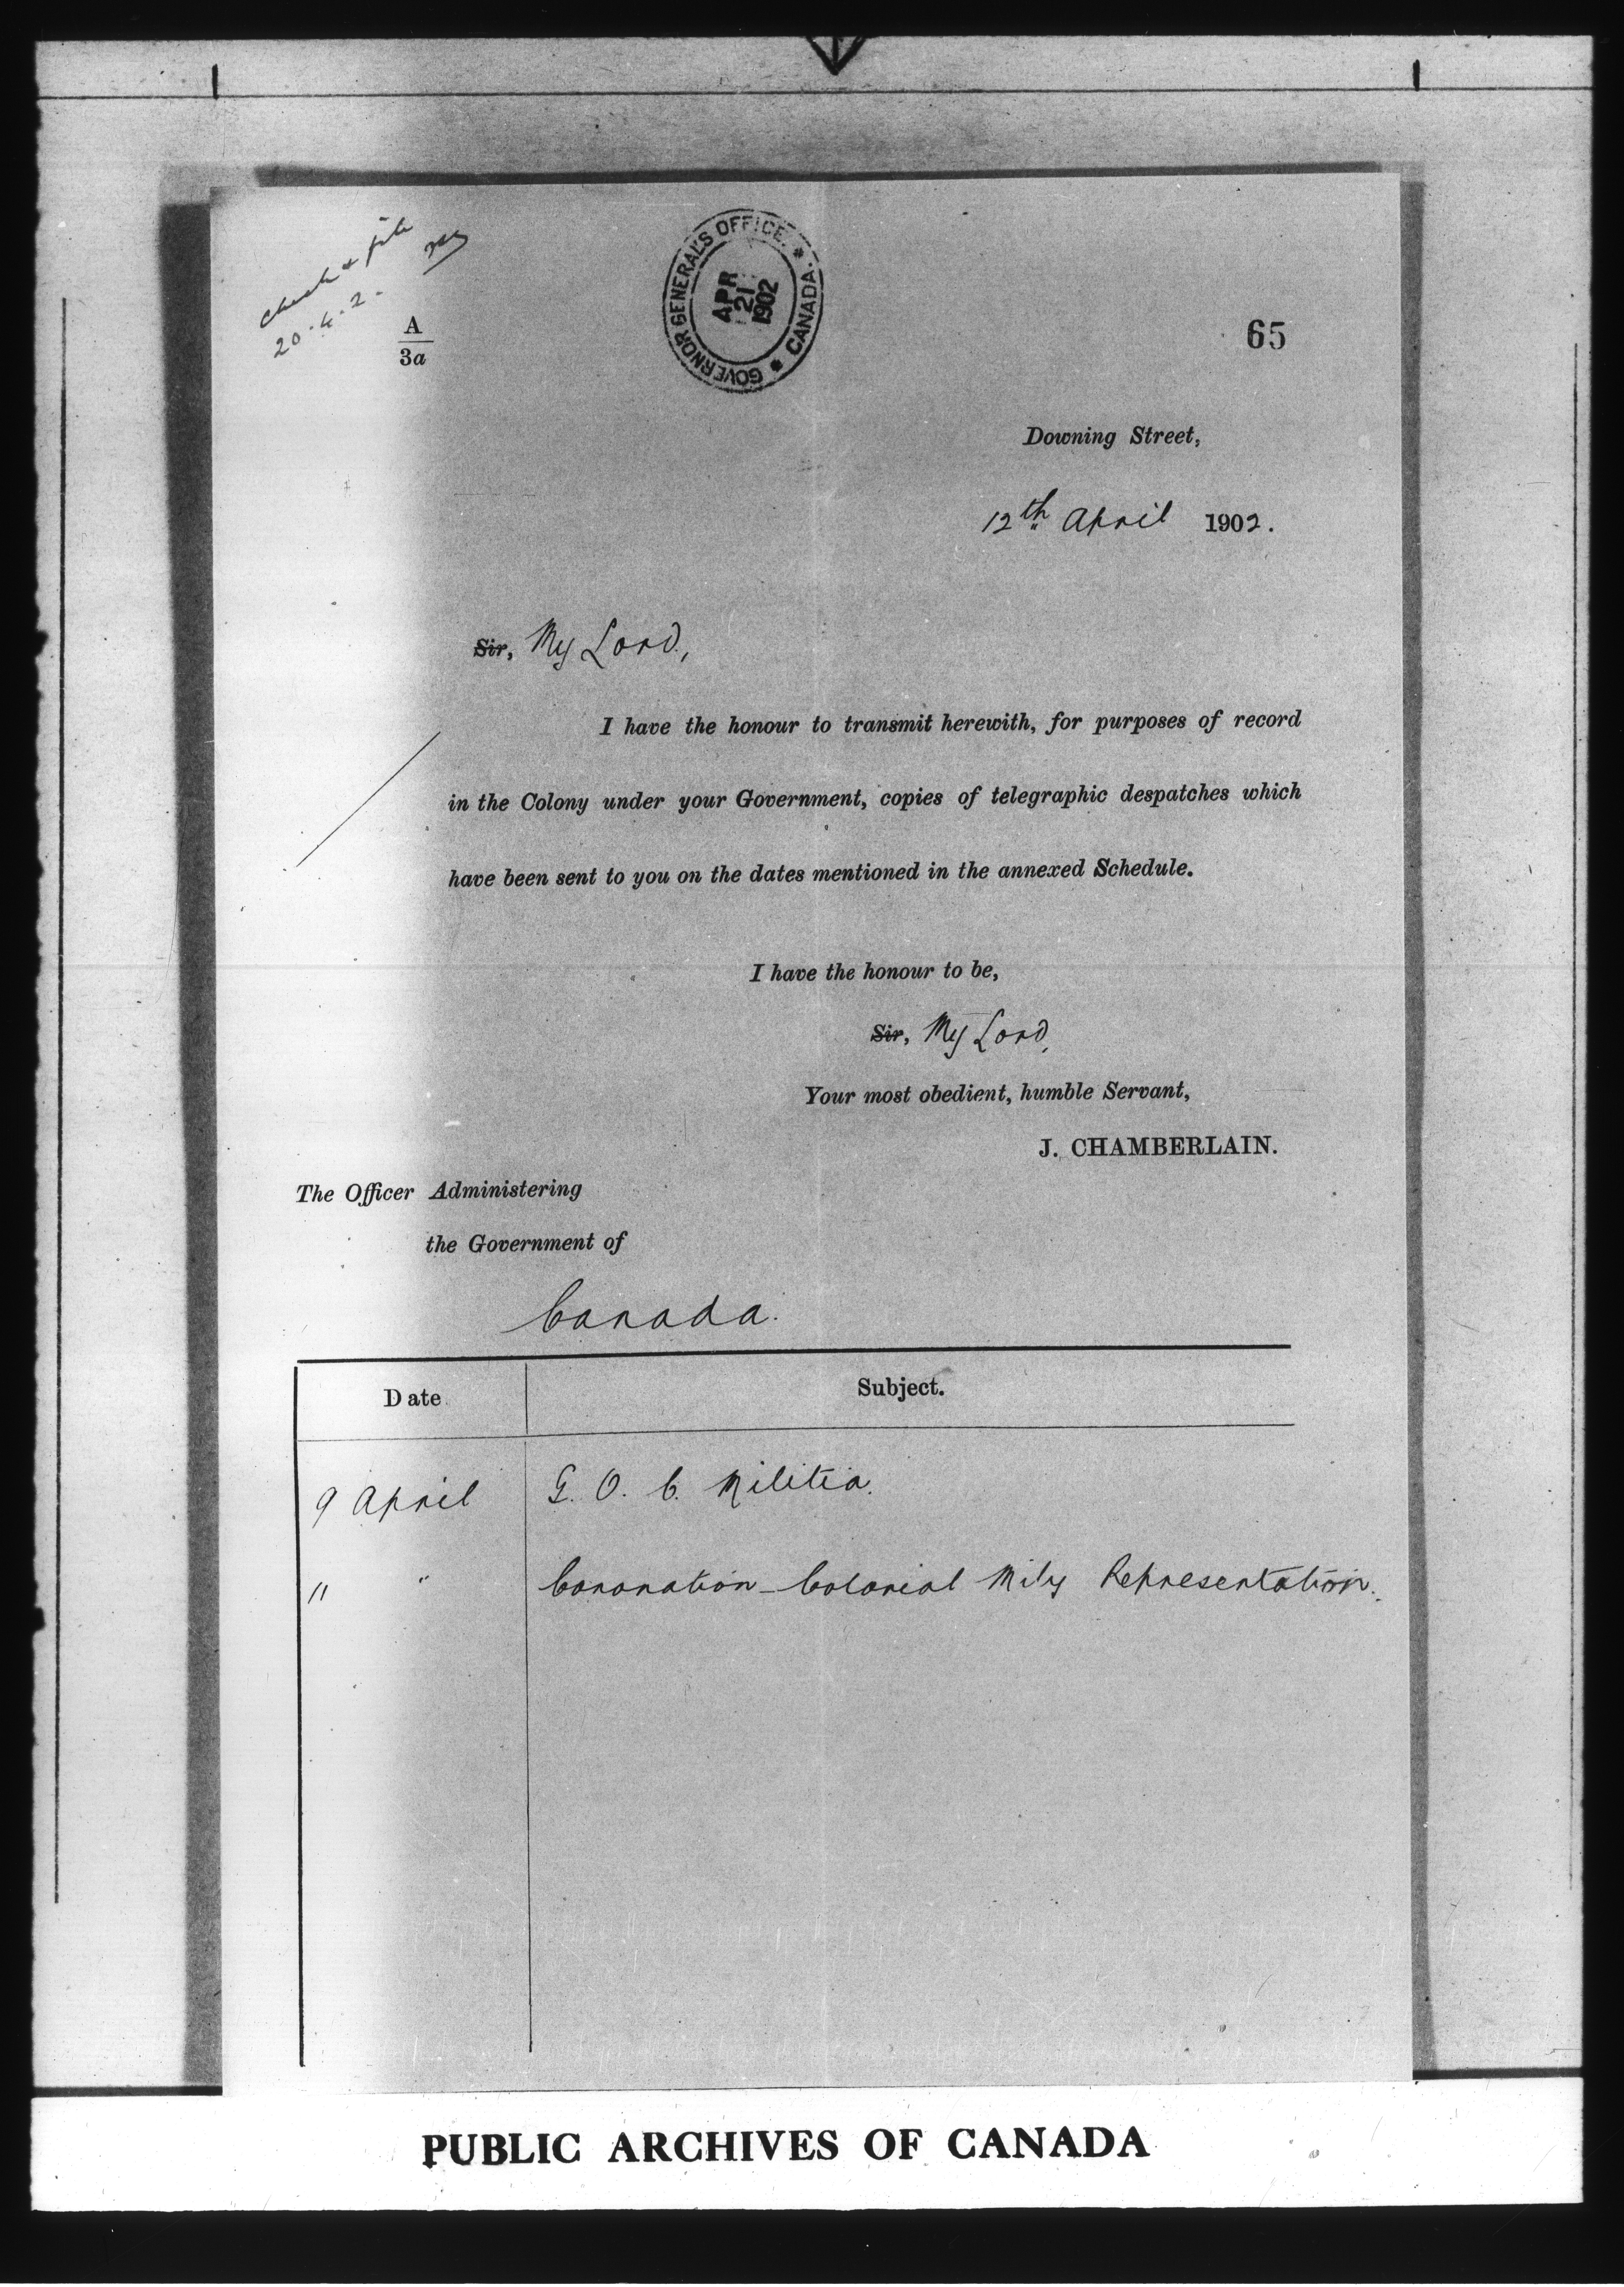 check & file
20.4.2.
A
3a
GOVERNOR GENERAL'S OFFICE. * CANADA. *
APR
21
1902
65
Downing Street,
12th April 1902.
Sir, My Lord,
I have the honour to transmit herewith, for purposes of record
in the Colony under your Government, copies of telegraphic despatches which
have been sent to you on the dates mentioned in the annexed Schedule.
I have the honour to be,
Sir, My Lord,
Your most obedient, humble Servant,
J. CHAMBERLAIN.
The Officer Administering
the Government of
Canada.
Date Subject.
9 April G. O. C. Militia.
" " Coronation - Colonial Mily Representation.
PUBLIC ARCHIVES OF CANADA